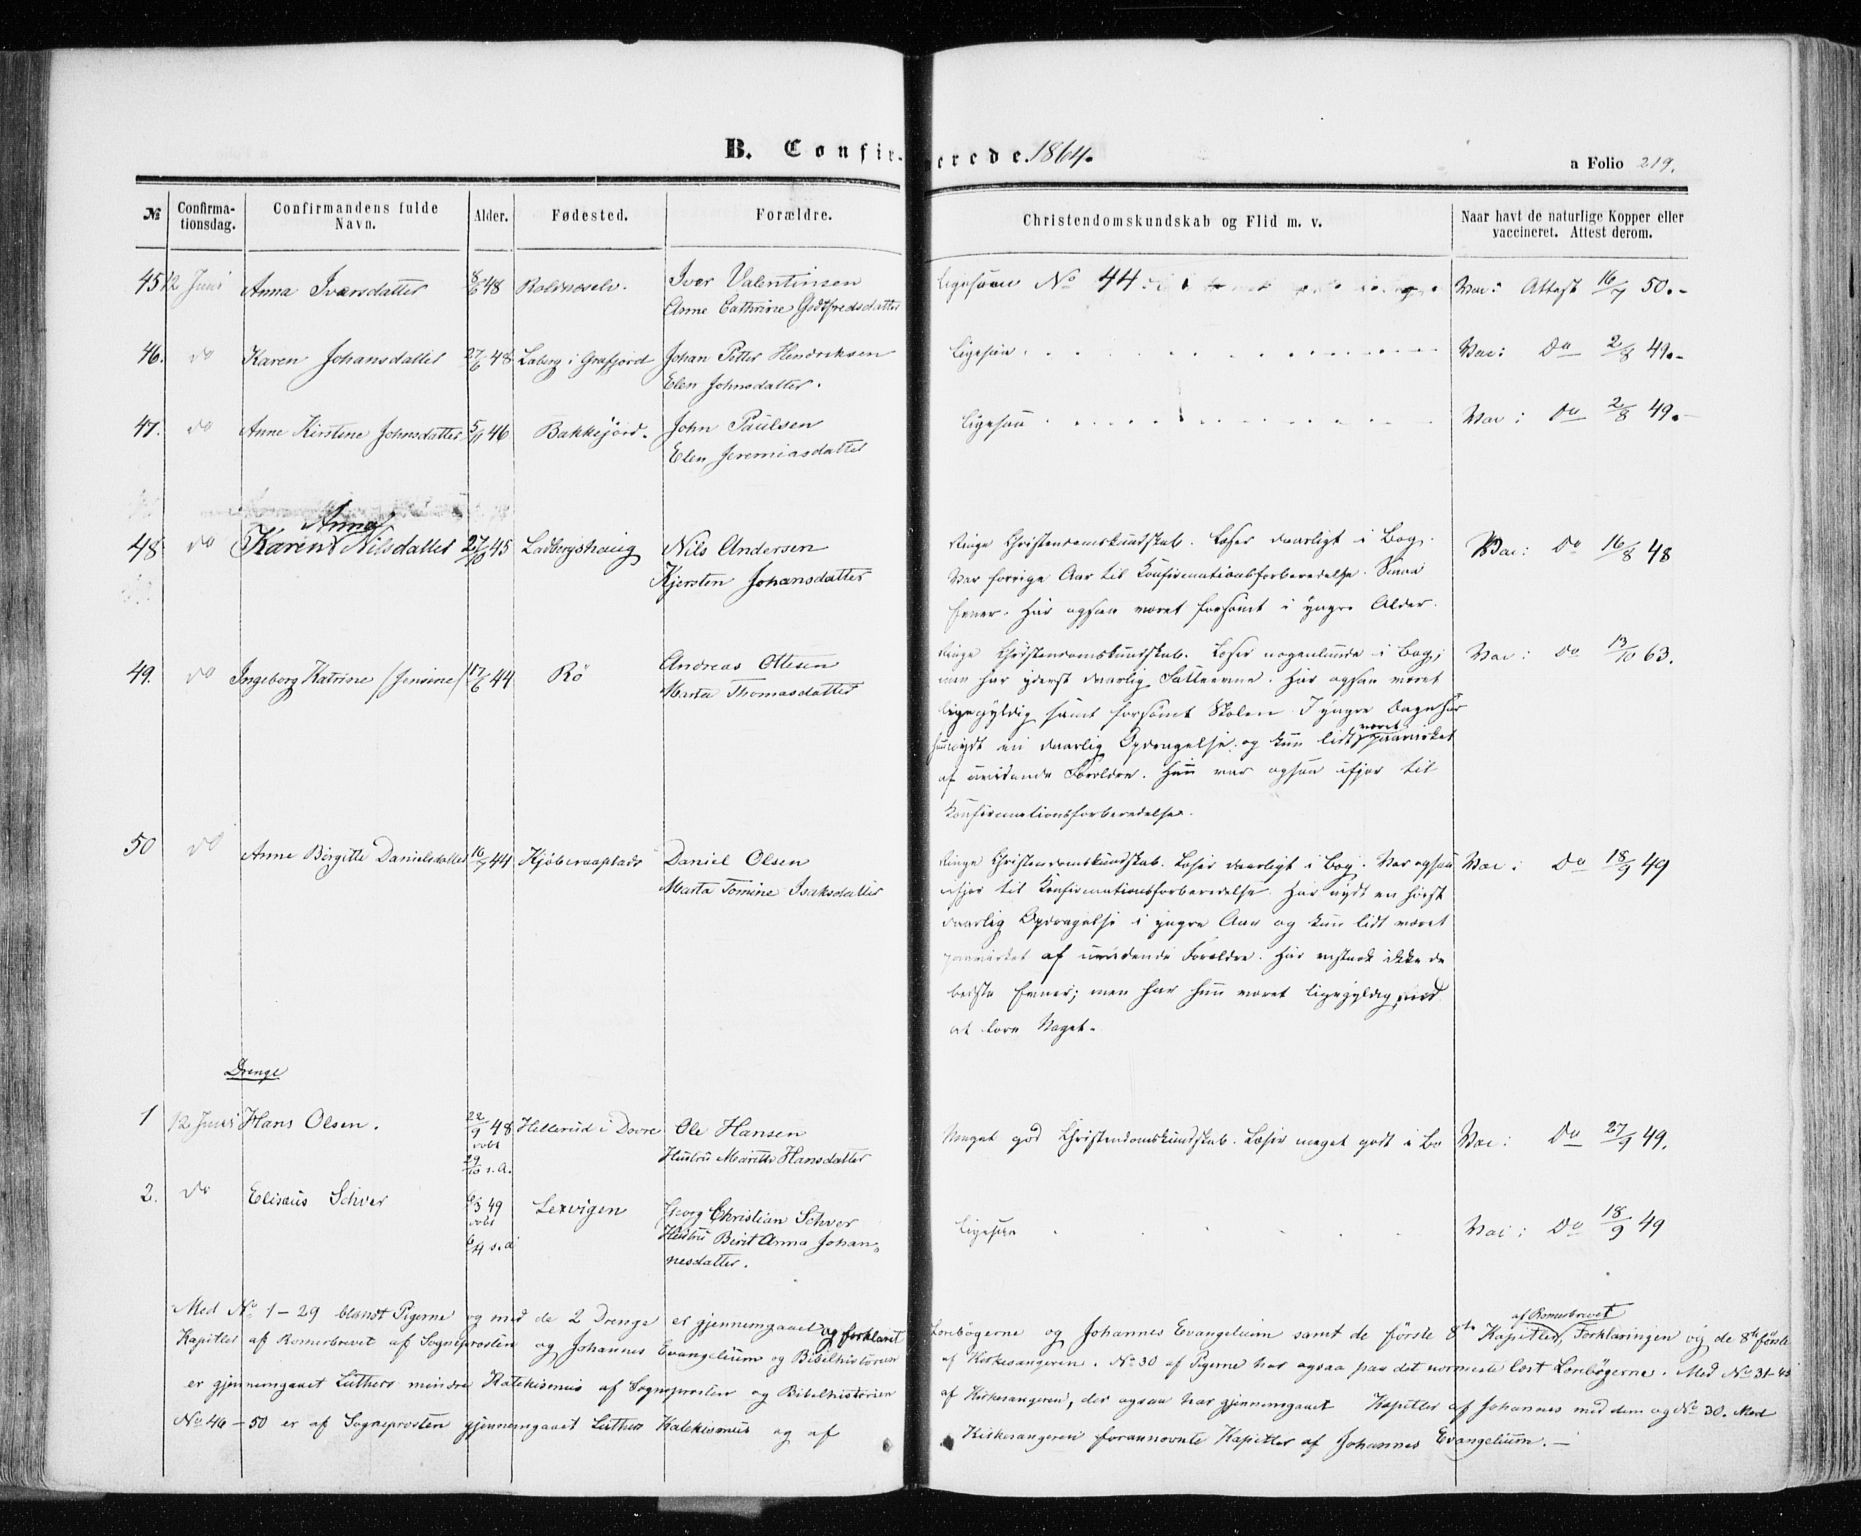 B. Confirmerede 1864.
a Folio 219.
№ Confirmationsdag. Confirmandens fulde Navn. Alder. Fødested. Forældre. Christendomskundskab og Flid m. v. Naar havt de naturlige Kopper eller vaccineret. Attest derom.
45 12 Juni Anna Ivarsdatter 8/6 48 Rolvnoselv. Ivar Valentinsen Ligesaa No 44. Vac: Attest 16/7 50.-
Anne Cathrine Godtfredsdatter
46. do Karen Johansdatter 27/6 48 Laberg i Grafjord Johan Petter Hendriksen Ligesaa. Vac: Do 2/8 49.-
Elen Johnsdatter.
47. do Anne Kirstine Johnsdatter 5/11 46 Bakkejord. John Paulsen Ligesaa Vac: Do 2/8 49.-
Elen Jeremiasdatter
Anna
48 do Karen Nilsdatter 27/10 45 Ladbergshaug Nils Andersen Ringe Christendomskundskab. Læser daarligt i Bog. Vac: Do 16/8 48
Kjersten Johansdatter Var forrige Aar til Konfirmationsforberedelse. Smaa
Evner. Har ogsaa været forsømt i yngre Alder.
49. do Ingeborg Katrine (Jensine) 17/6 44 Rö Andreas Ottesen Ringe Christendomskundskab. Læser nogenlunde i Bog; Vac: Do 13/10 63.
Marta Thomasdatter men har yderst daarlig Fatteevne. Har ogsaa været
ligegyldig samt forsømt Skolen. I yngre Dage har
hun nydt en daarlig Opdragelse og kun lidt været paavirket
af uvidende Forældre. Hun var ogsaa ifjor til
Konfirmationsforberedelse.
50 do Anne Birgitte Danielsdatter 16/7 44 Kjöbernaplads Daniel Olsen Ringe Christendomskundskab. Læser daarligt i Bog. Var ogsaa Vac: Do 18/9 49
Marta Tomine Isaksdatter ifjor til Konfirmationsforberedelse. Har nydt en høist
daarlig Opdragelse i yngre Aar og kun lidt været
paavirket af uvidende Forældre. Har vistnok ikke de
bedste Evner; men har hun været ligegyldig med
at lære Noget.
Drenge
1 12 Juni Hans Olsen. 22/9 48 døbt 29/10 s.A. Hellerud i Dovre Ole Hansen Meget god Christendomskundskab. Læser meget godt i Bo Vac: Do 27/9 49.
Hustru Maritte Hansdatter
2. do Elisæus Schver 6/3 49 døbt 6/4 s.a Lexvigen Georg Christian Schver Ligesaa Vac: Do 18/9 49
Hustru Berit Anna Johan-
nesdatter.
Med No 1-29 blandt Pigerne og med de 2 Drenge er gjennemgaaet og forklaret Lærebøgerne og Johannes Evangelium samt de første 8te Kapitler af Romerbrevet, Forklaringen og de 8te første
Kapitler af Romerbrevet af Sogneprosten og Johannes Evangelium og Bibelhistorien af Kirkesangeren. No 30 af Pigerne har ogsaa paa det nærmeste lært Lærebøgerne. Med No 31-45
er gjennemgaaet Luthers mindre Katekismus af Sogneprosten og Bibelhistorien af Kirkesangeren, der ogsaa har gjennemgaaet Kapitler af Johannes med dem og No 30. Med
No 46-50 er af Sogneprosten gjennemgaaet Luthers Katekismus og af Kirkesangeren forannævnte Kapitler af Johannes Evangelium.-